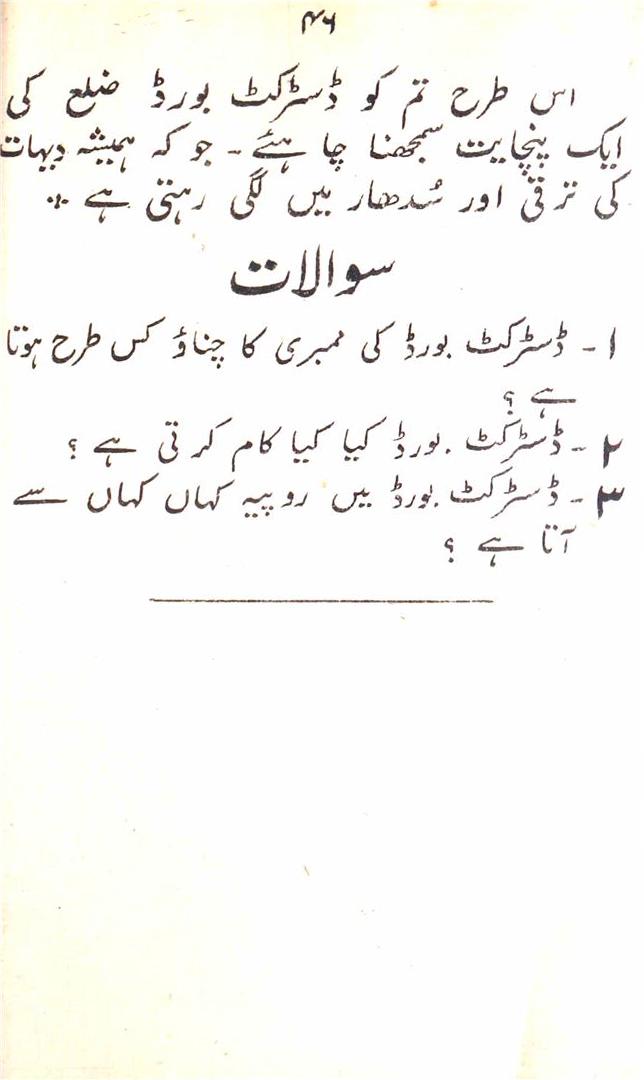 ۴۶
اس طرح تم کو ڈسٹرکٹ بورڈ ضلع کی
ایک پنچایت سمجھنا چاہئے ۔ جو کہ ہمیشہ دیہات
کی ترقی اور سُدھار میں لگی رہتی ہے ⁘
سوالات
۱ ۔ ڈسٹرکٹ بورڈ کی ممبری کا چناؤ کس طرح ہوتا
ہے ؟
۲ ۔ ڈسٹرکٹ بورڈ کیا کیا کام کرتی ہے ؟
۳ ۔ ڈسٹرکٹ بورڈ میں روپیہ کہاں کہاں سے
آتا ہے ؟